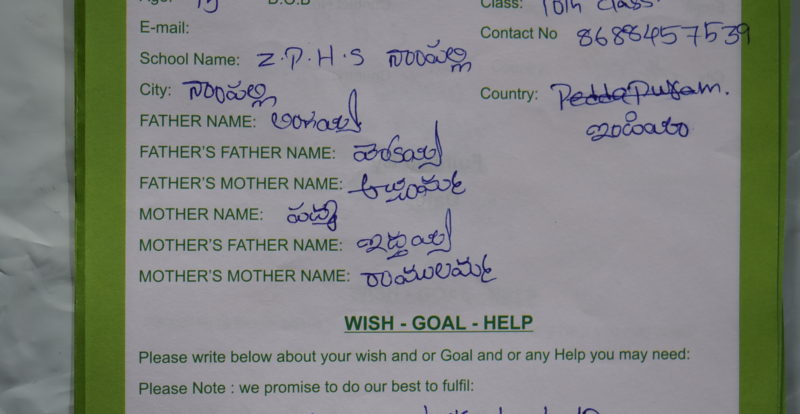 Age: 15 D.O.B Class: 10th class
E-mail: Contact No 8688457539
School Name: Z.P.H.S నాంపల్లి
City: నాంపల్లి Country: Peddapuram.
FATHER NAME: ఇండియా
FATHER'S FATHER NAME:
FATHER'S MOTHER NAME:
MOTHER NAME: పద్మ
MOTHER'S FATHER NAME: ఇద్దయ్య
MOTHER'S MOTHER NAME: రాములమ్మ
WISH - GOAL - HELP
Please write below about your wish and or Goal and or any Help you may need:
Please Note : we promise to do our best to fulfil: